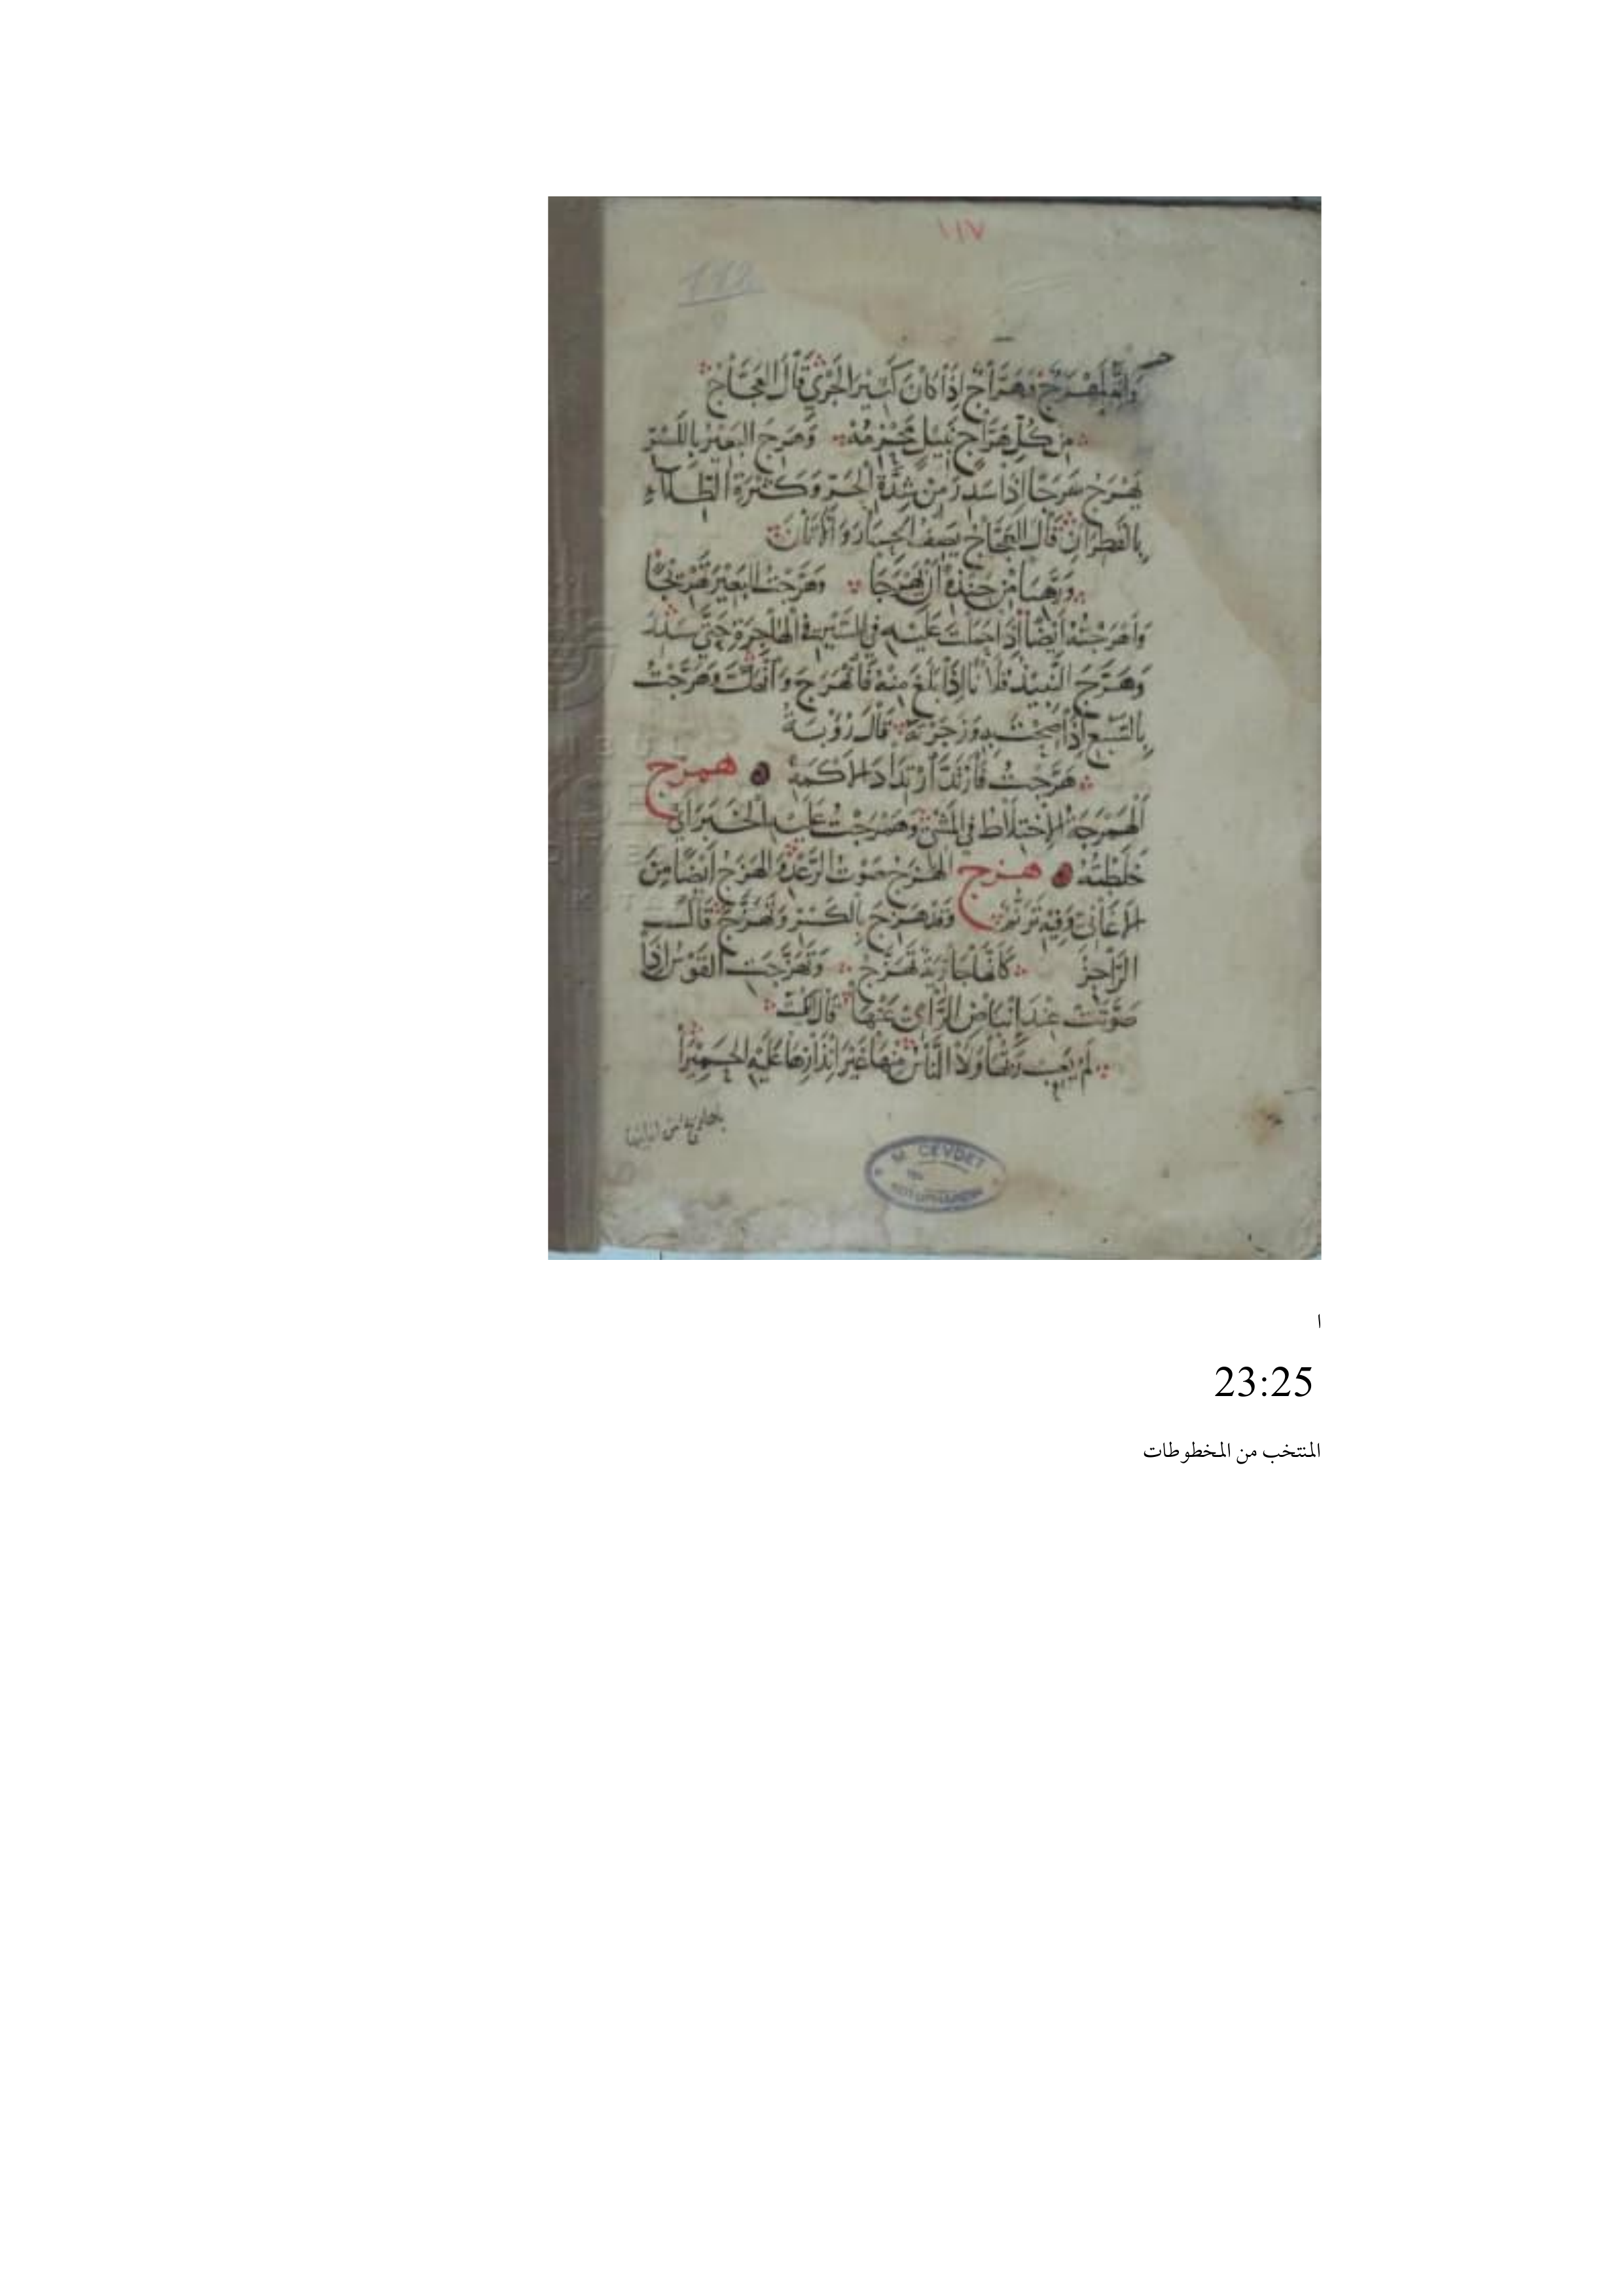 ١١٧
112
وَإِنَّهُ لَمِهْرَجٌ وَهَرَّاجٌ إِذَا كَانَ كَثِيرَ الْجَرْيِ قَالَ الْعَجَّاجُ
مِنْ كُلِّ هَرَّاجٍ نَبِيلٍ مَحْزِمُهْ وَهَرِجَ الْبَعِيرُ بِالْكَسْرِ
يَهْرَجُ هَرَجًا إِذَا سَدِرَ مِنْ شِدَّةِ الْحَرِّ وَكَثْرَةِ الطِّلَاءِ
بِالْقَطِرَانِ قَالَ الْعَجَّاجُ يَصِفُ الْحِمَارَ وَالْأَتَانَ
وَرَهِبَا مِنْ حَنْذِهِ أَنْ يَهْرَجَا وَهَرَّجْتُ الْبَعِيرَ تَهْرِيجًا
وَأَهْرَجْتُهُ أَيْضًا إِذَا حَمَلْتَ عَلَيْهِ فِي السَّيْرِ فِي الْهَاجِرَةِ حَتَّى سَدِرَ
وَهَرَّجَ النَّبِيذُ فُلَانًا إِذَا بَلَغَ مِنْهُ فَانْهَرَجَ وَانْهَكَّ وَهَرَّجْتُ
بِالسَّبُعِ إِذَا صِحْتَ بِهِ وَزَجَرْتَهُ قَالَ رُؤْبَةُ
هَرَّجْتُ فَارْتَدَّ ارْتِدَادَ الْأَكْمَهِ همرج
الْهَمْرَجَةُ الِاخْتِلَاطُ فِي الْمَشْيِ وَهَمْرَجْتُ عَلَيْهِ الْخَبَرَ أَيْ
خَلَطْتُهُ هزج الْهَزَجُ صَوْتُ الرَّعْدِ وَالْهَزَجُ أَيْضًا مِنَ
الْأَغَانِي وَفِيهِ تَرَنُّمٌ وَقَدْ هَزِجَ بِالْكَسْرِ وَتَهَزَّجَ قَالَ
الرَّاجِزُ كَأَنَّهَا جَارِيَةٌ تَهَزَّجُ وَتَهَزَّجَتِ الْقَوْسُ إِذَا
صَوَّتَتْ عِنْدَ إِنْبَاضِ الرَّامِي عَنْهَا قَالَ الْكُمَيْتُ
لَمْ يَعِبْ رَبُّهَا وَلَا النَّاسُ مِنْهَا غَيْرَ إِنْذَارِهَا عَلَيْهِ الْحَمِيرَا
بأهازيج من أغانيها
M. CEVDET
KÜTÜPHANESİ
ا
23:25
المنتخب من المخطوطات